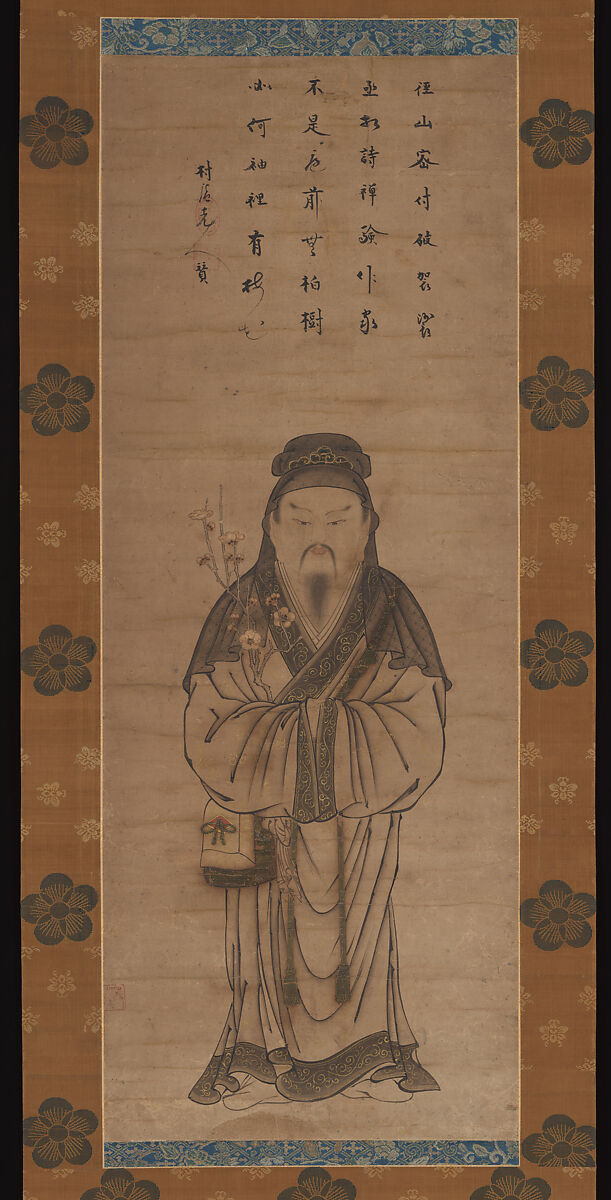 径山密付破袈裟
丞相詩禅驗作家
不是庭前無柏樹
如何袖裡有梅花
村庵老人賛